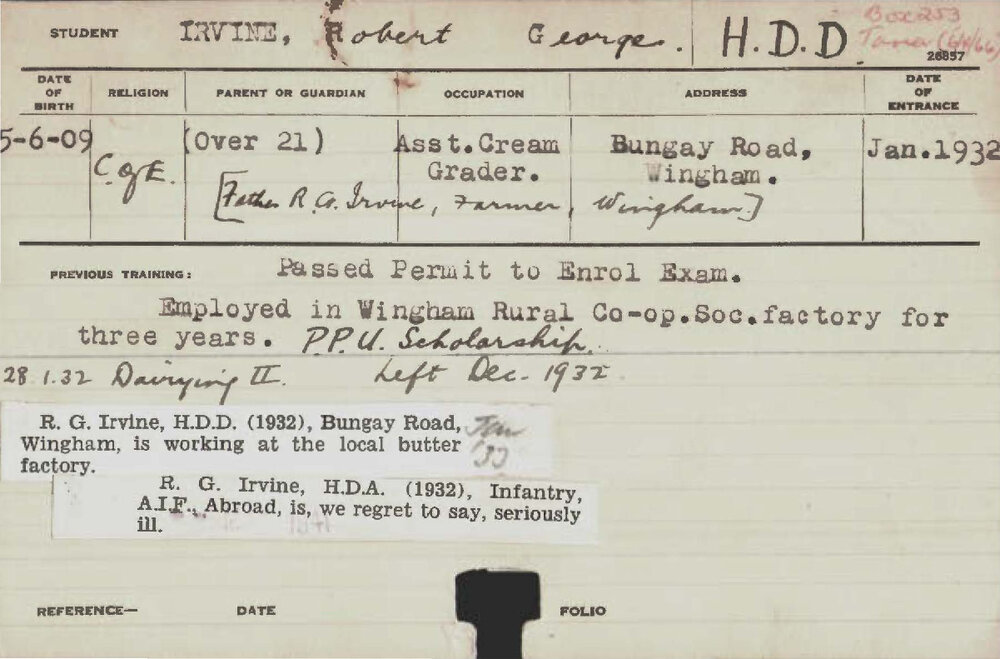 STUDENT IRVINE, Robert George. H.D.D. Box 253
26857
DATE OF BIRTH RELIGION PARENT OR GUARDIAN OCCUPATION ADDRESS DATE OF ENTRANCE
5-6-09 C of E. (Over 21) Asst.Cream Grader. Bungay Road, Wingham. Jan.1932
[Father R.G. Irvine, Farmer, Wingham]
PREVIOUS TRAINING: Passed Permit to Enrol Exam.
Employed in Wingham Rural Co-op.Soc.factory for
three years. P.P.U. Scholarship.
28 1.32 Dairying II. Left Dec. 1932
R. G. Irvine, H.D.D. (1932), Bungay Road,
Wingham, is working at the local butter
factory.
'33
R. G. Irvine, H.D.A. (1932), Infantry,
A.I.F., Abroad, is, we regret to say, seriously
ill.
REFERENCE— DATE FOLIO